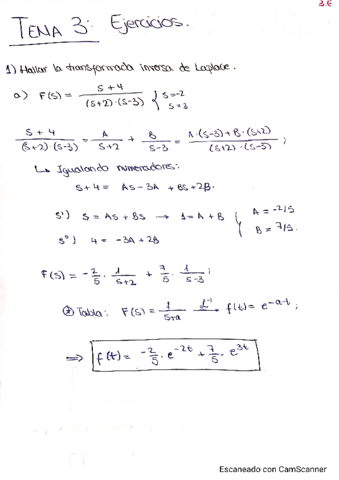 3.E
TEMA 3: Ejercicios.
1) Hallar la transformada inversa de Laplace.
a) F(s) = s+4 / (s+2)·(s-3) { s=-2 s=3
s+4 / (s+2)·(s-3) = A / s+2 + B / s-3 = A·(s-3)+B·(s+2) / (s+2)·(s-3) ;
↳ Igualando numeradores:
s+4 = As-3A + Bs+2B.
s¹) s = As+Bs → 1 = A+B { A = -2/5
s⁰) 4 = -3A+2B B = 7/5.
F(s) = -2/5 · 1/s+2 + 7/5 · 1/s-3 ;
Tabla: F(s) = 1/s+a L⁻¹→ f(t) = e^-a·t ;
⇒ f(t) = -2/5 · e^-2t + 7/5 · e^3t
Escaneado con CamScanner